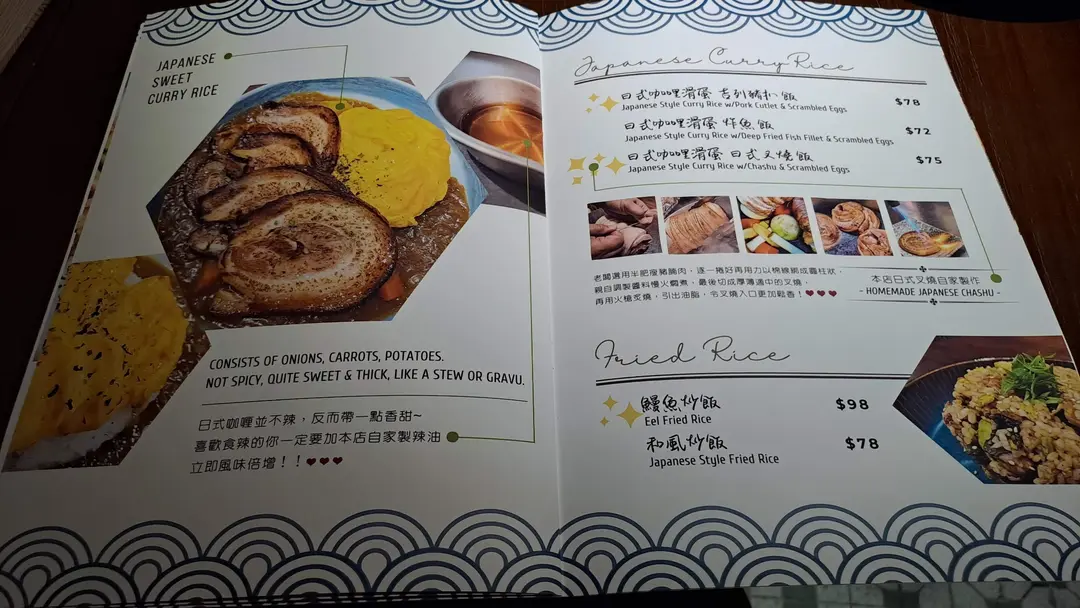 JAPANESE
SWEET
CURRY RICE
CONSISTS OF ONIONS, CARROTS, POTATOES.
NOT SPICY, QUITE SWEET & THICK, LIKE A STEW OR GRAVU.
日式咖喱並不辣，反而帶一點香甜~
喜歡食辣的你一定要加本店自家製辣油
立即風味倍增！！❤❤❤
Japanese Curry Rice
日式咖喱滑蛋 吉列豬扒飯 $78
Japanese Style Curry Rice w/Pork Cutlet & Scrambled Eggs
日式咖喱滑蛋 炸魚飯 $72
Japanese Style Curry Rice w/Deep Fried Fish Fillet & Scrambled Eggs
日式咖喱滑蛋 日式叉燒飯 $75
Japanese Style Curry Rice w/Chashu & Scrambled Eggs
老闆選用半肥瘦豬腩肉，逐一捲好再用力以棉線綁成圓柱狀，
親自調製醬料慢火燜煮，最後切成厚薄適中的叉燒，
再用火槍炙燒，引出油脂，令叉燒入口更加鬆香！❤❤❤
本店日式叉燒自家製作
- HOMEMADE JAPANESE CHASHU -
Fried Rice
鰻魚炒飯 $98
Eel Fried Rice
和風炒飯 $78
Japanese Style Fried Rice